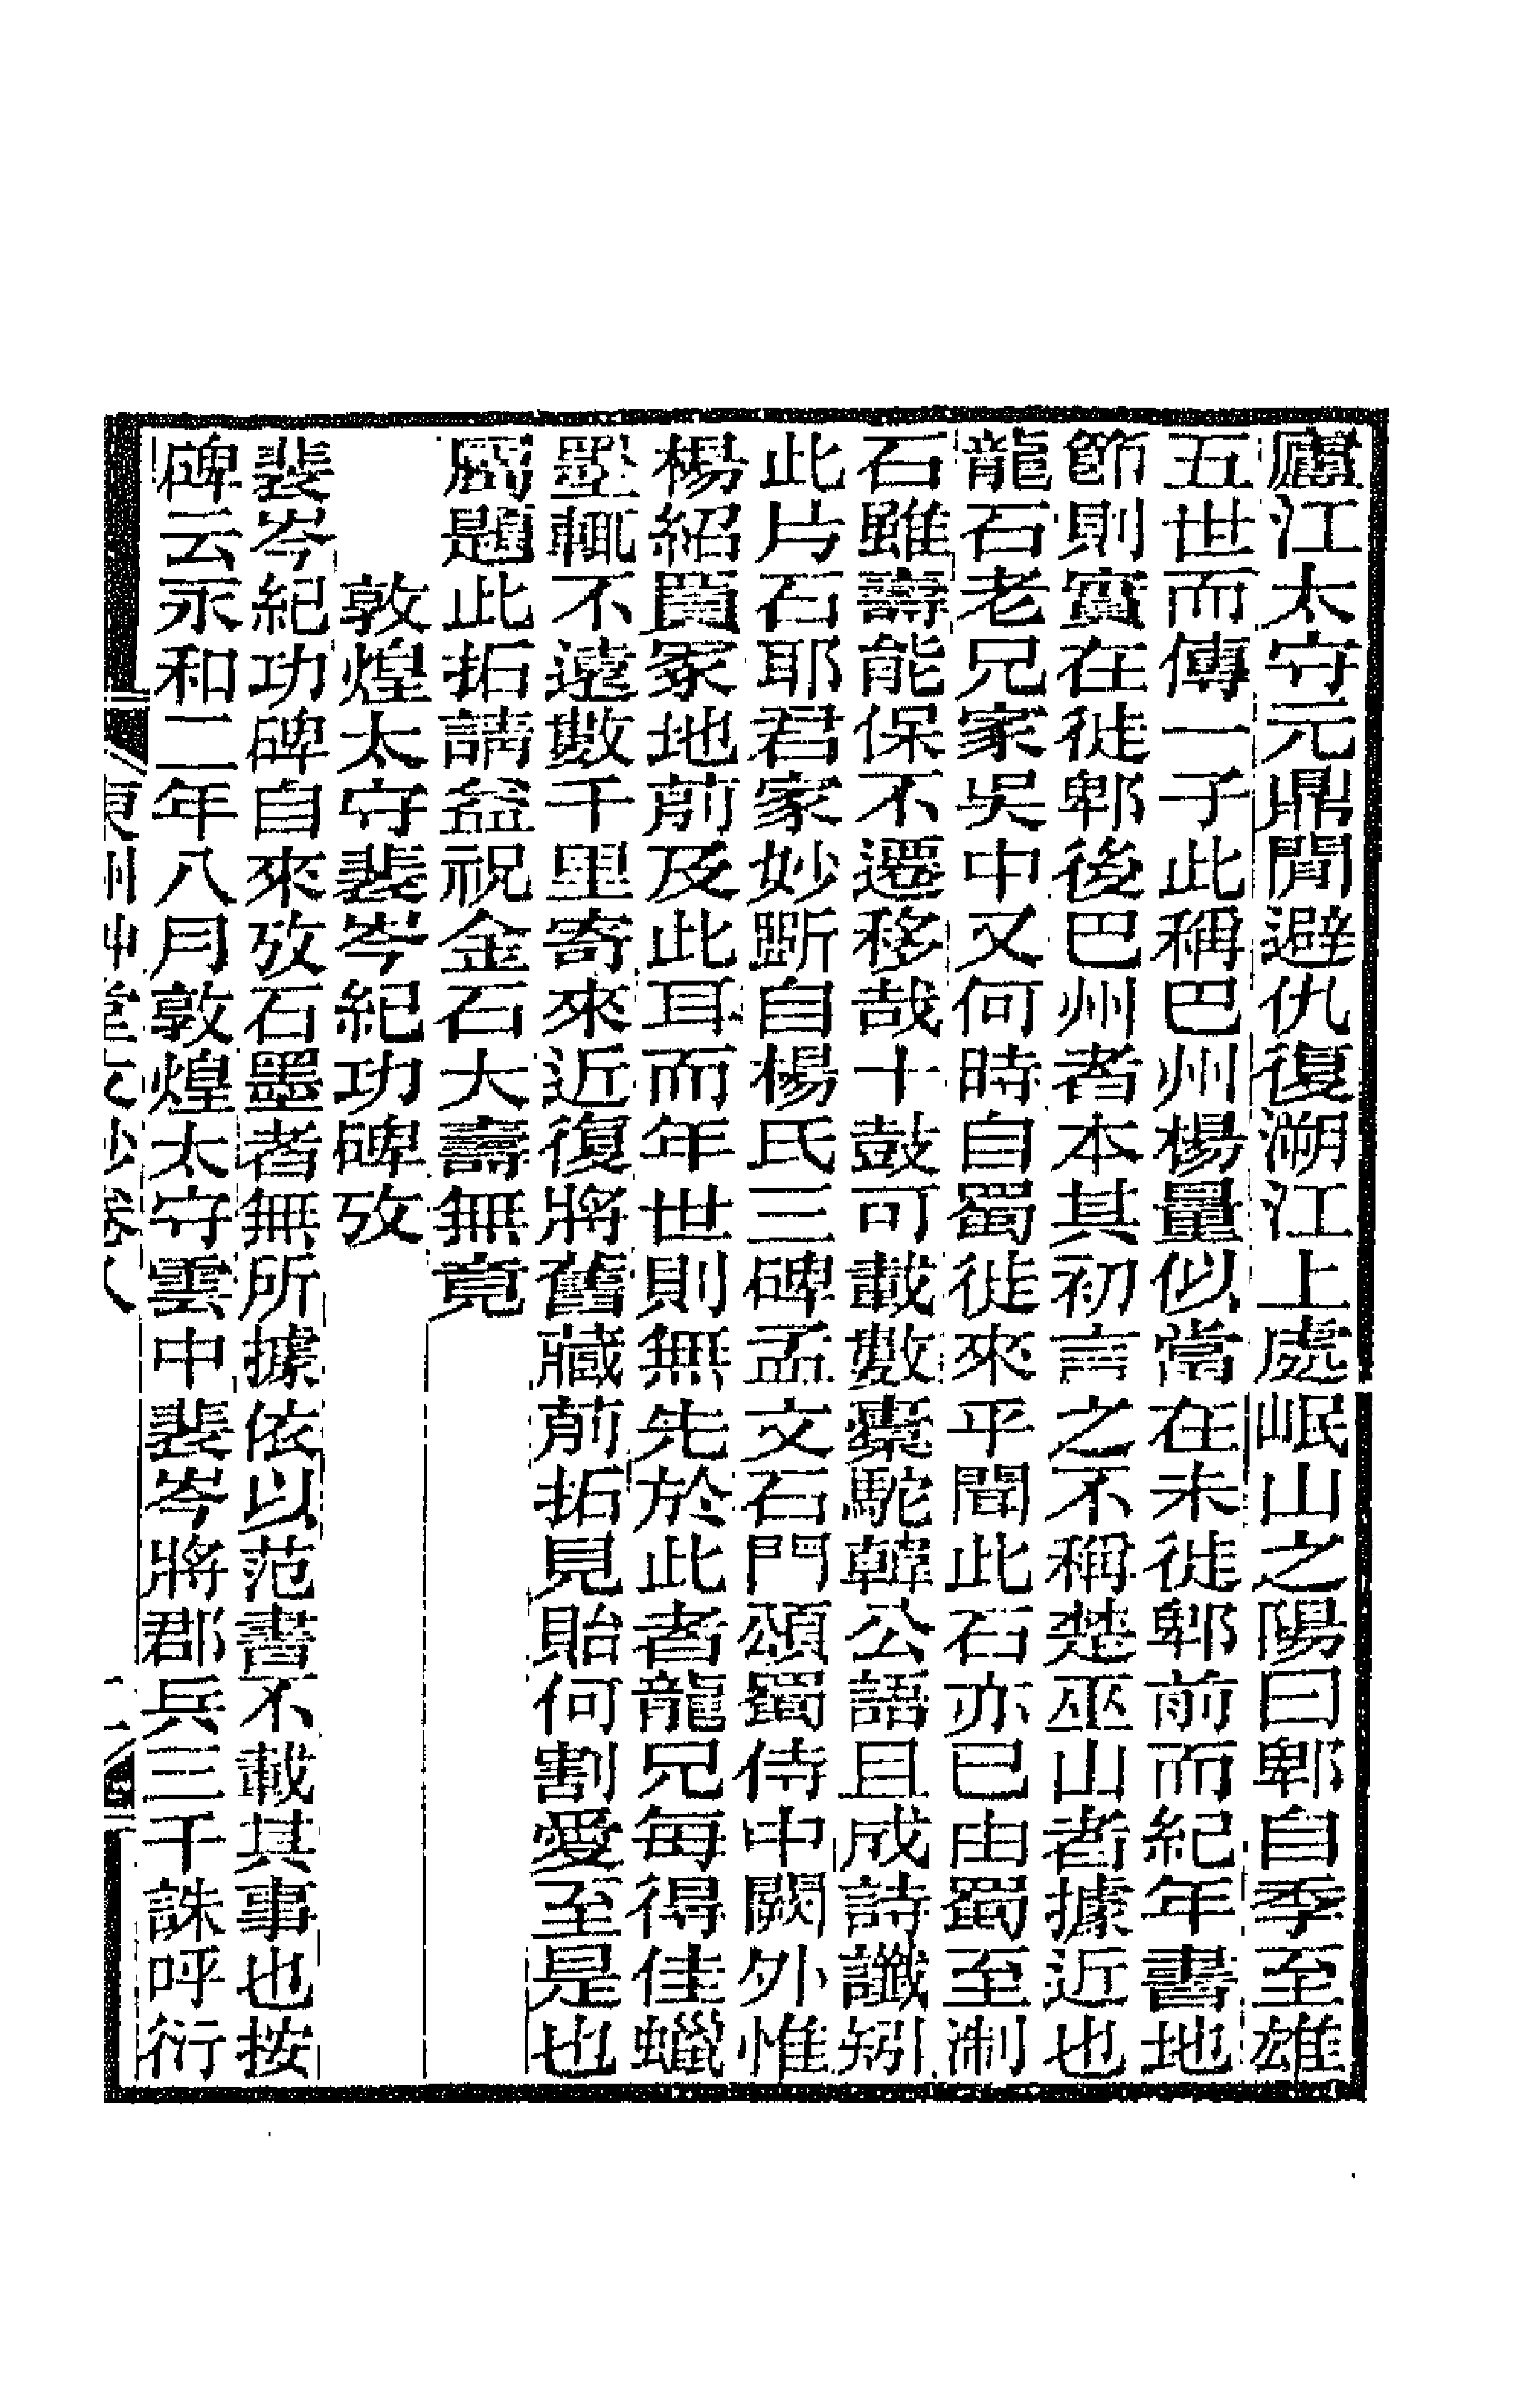 廬江太守元鼎閒避仇復溯江上處岷山之陽曰郫自季至雄
五世而傳一子此稱巴州楊量似當在未徙郫前而紀年書地
節則實在徙郫後巴州者本其初言之不稱楚巫山者據近也
龍石老兄家吳中又何時自蜀徙來平聞此石亦已由蜀至淛
石雖壽能保不遷移哉十鼓可載數橐駝韓公語且成詩讖矧
此片石耶君家妙斲自楊氏三碑孟文石門頌蜀侍中闕外惟
楊紹買冢地莂及此耳而年世則無先於此者龍兄每得佳蠟
墨輒不遠數千里寄來近復將舊藏前拓見貽何割愛至是也
屬題此拓請益祝金石大壽無竟
敦煌太守裴岑紀功碑攷
裴岑紀功碑自來攷石墨者無所據依以范書不載其事也按
碑云永和二年八月敦煌太守雲中裴岑將郡兵三千誅呼衍
東洲艸堂文鈔卷八